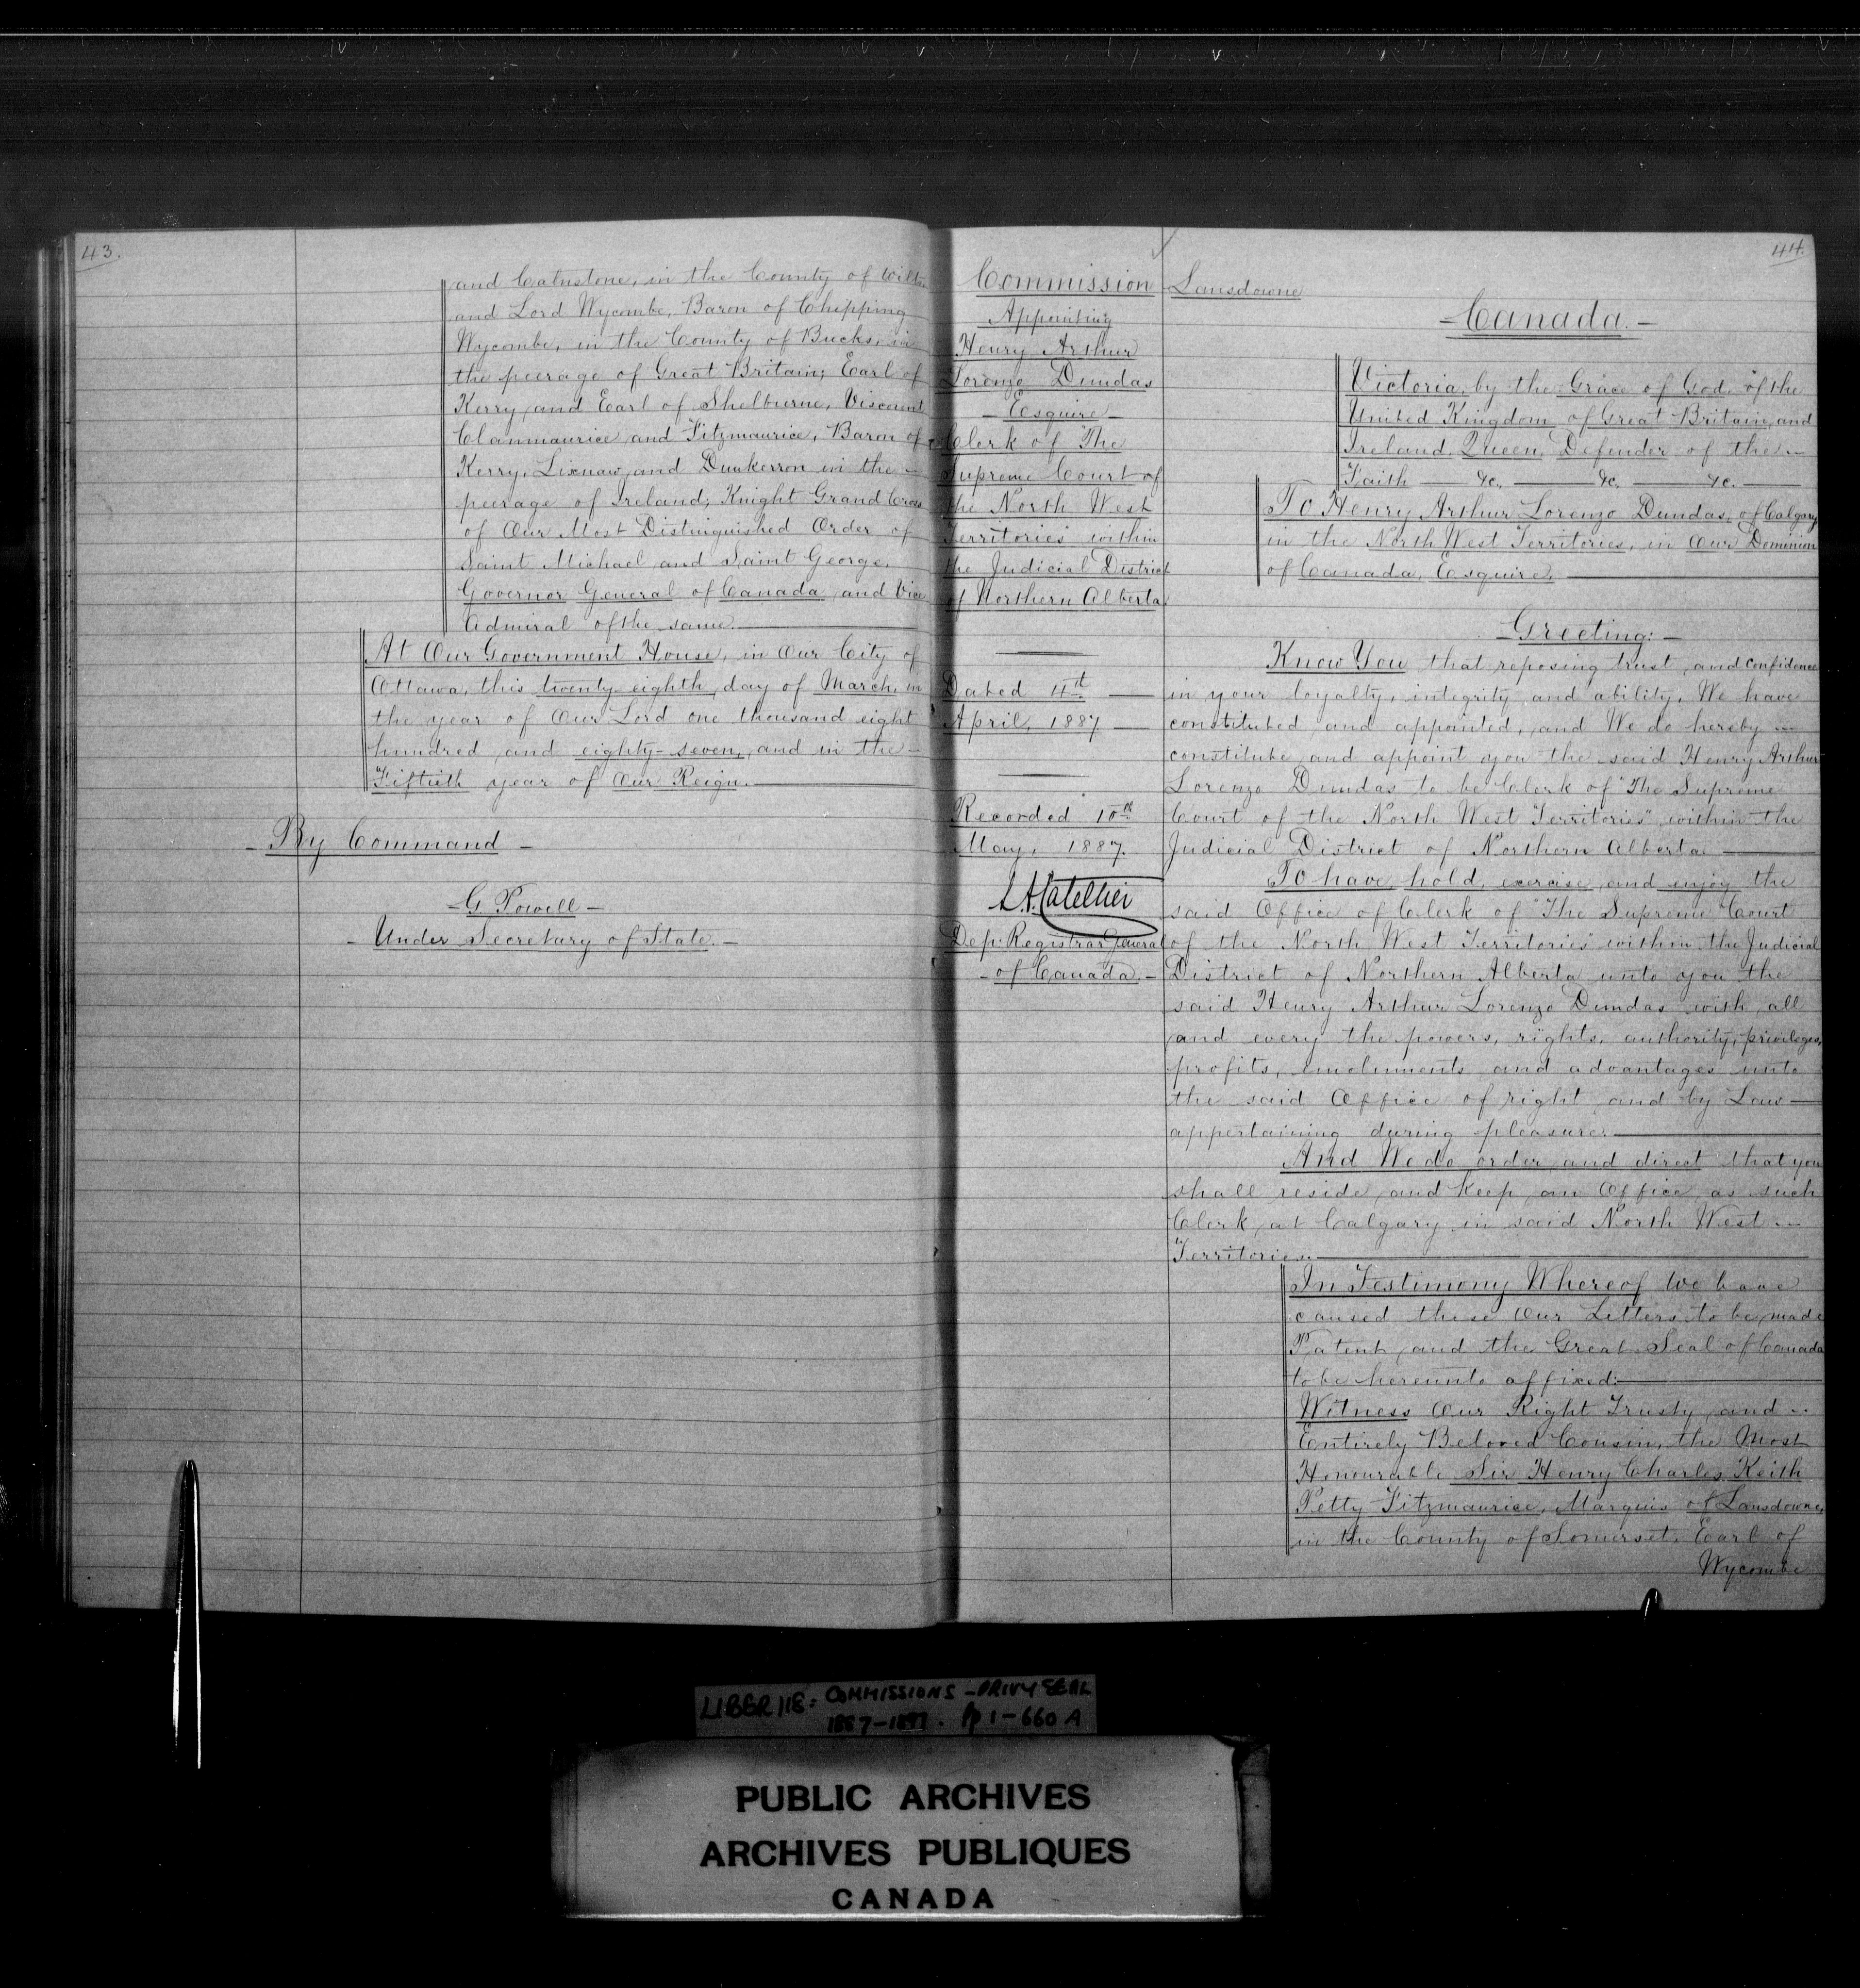 43.
and Calnstone, in the County of Wilts,
and Lord Wycombe, Baron of Chipping
Wycombe, in the County of Bucks, in
the peerage of Great Britain; Earl of
Kerry and Earl of Shelburne, Viscount
Clanmaurice and Fitzmaurice, Baron of
Kerry, Lixnaw and Dunkerron in the
peerage of Ireland; Knight Grand Cross
of Our Most Distinguished Order of
Saint Michael and Saint George.
Governor General of Canada and Vice
Admiral of the same.
At Our Government House, in Our City of
Ottawa, this twenty eighth day of March, in
the year of Our Lord one thousand eight
hundred and eighty-seven, and in the
Fiftieth year of Our Reign.
- By Command -
- G Powell -
- Under Secretary of State. -
44.
Commission
Appointing
Henry Arthur
Lorenzo Dundas
- Esquire -
Clerk of "The
Supreme Court of
the North West
Territories" within
the Judicial District
of Northern Alberta
Dated 4th
April, 1887
Recorded 10th
May, 1887.
L.A. Catellier
Dep: Registrar General
- of Canada. -
Lansdowne
- Canada. -
Victoria, by the Grace of God, of the
United Kingdom of Great Britain and
Ireland, Queen, Defender of the
Faith &c. &c. &c.
To Henry Arthur Lorenzo Dundas, of Calgary
in the North West Territories, in Our Dominion
of Canada, Esquire,
- Greeting: -
Know You that reposing trust and confidence
in your loyalty, integrity and ability, We have
constituted and appointed, and We do hereby
constitute and appoint you the said Henry Arthur
Lorenzo Dundas to be Clerk of "The Supreme
Court of the North West Territories" within the
Judicial District of Northern Alberta
To have, hold, exercise and enjoy the
said Office of Clerk of "The Supreme Court
of the North West Territories" within the Judicial
District of Northern Alberta unto you the
said Henry Arthur Lorenzo Dundas with all
and every the powers, rights, authority, privileges,
profits, emoluments and advantages unto
the said Office of right and by Law
appertaining during pleasure.
And We do order and direct that you
shall reside and keep an Office as such
Clerk at Calgary in said North West
Territories.
In Testimony Whereof We have
caused these Our Letters to be made
Patent, and the Great Seal of Canada
to be hereunto affixed:
Witness Our Right Trusty and
Entirely Beloved Cousin, the Most
Honourable Sir Henry Charles Keith
Petty Fitzmaurice, Marquis of Lansdowne,
in the County of Somerset, Earl of
Wycombe
LIBER 118: COMMISSIONS - PRIVY SEAL
1887-1897. pp 1-660 A
PUBLIC ARCHIVES
ARCHIVES PUBLIQUES
CANADA